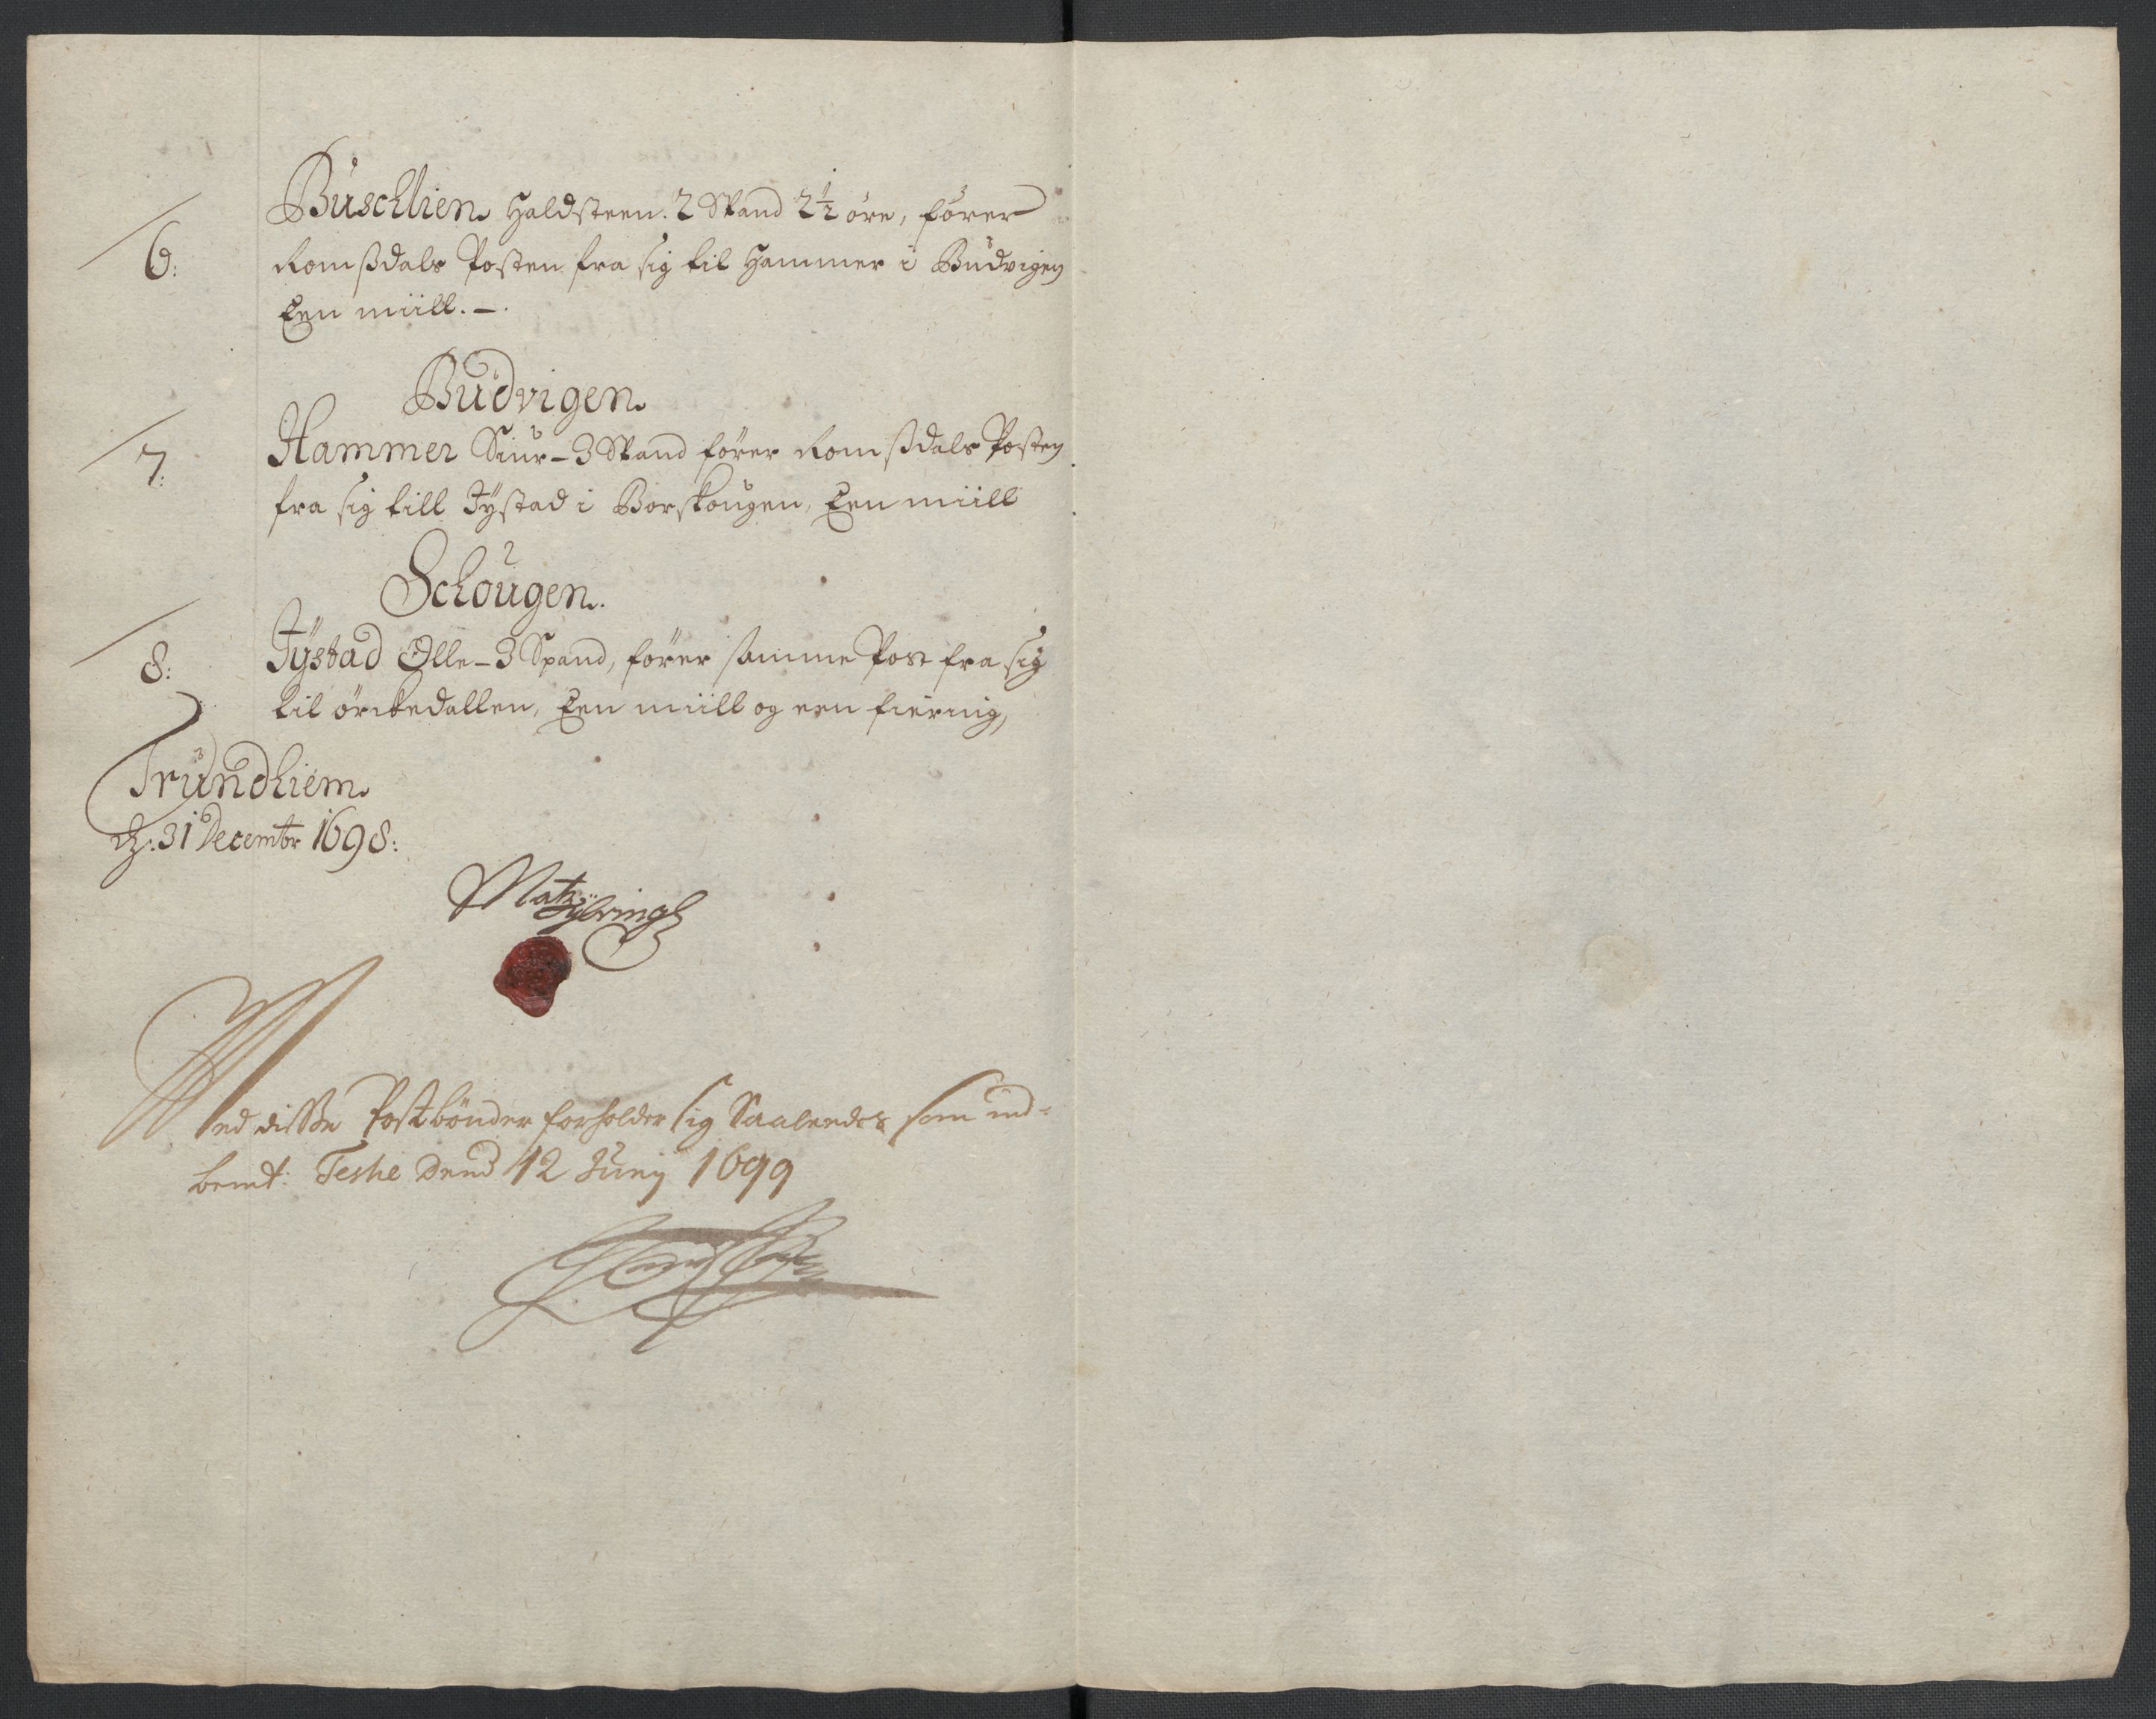 6: Buschlien Haldsteen. 2 Spand 2 1/2 öre, förer
Romßdals Posten fra sig til Hammer i Budvigen
Een miill. –.
Budvigen.
7: Hammer Siur – 3 Spand förer Romßdals Posten
fra sig till Jÿstad i Borskougen, Een miill
Schougen.
8: Jÿstad Olle – 3 Spand, förer samme Post fra sig
til örckedallen, Een miill og een fiering,
Trundhiem.
dz: 31 Decembr 1698:
Med disße Postbönder forholder sig Saaledes som ind-
bemt: Teshe Dend 12 Junij 1699